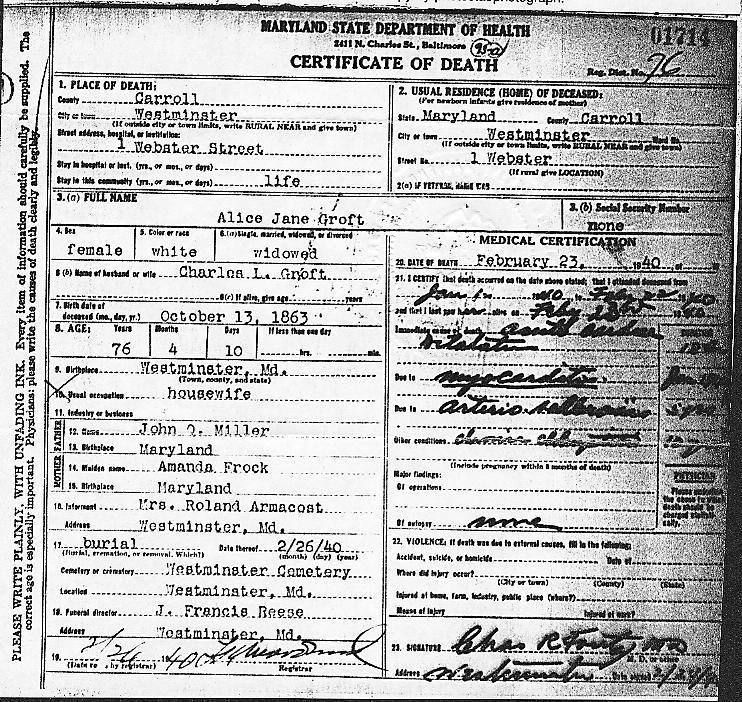 MARYLAND STATE DEPARTMENT OF HEALTH
2411 N. Charles St., Baltimore
CERTIFICATE OF DEATH
01714
Reg. Dist. No. 76
PLEASE WRITE PLAINLY, WITH UNFADING INK. Every item of information should carefully be supplied. The
correct age is especially important. Physicians: please write the causes of death clearly and legibly.
1. PLACE OF DEATH:
County Carroll
City or town Westminster
(If outside city or town limits, write RURAL NEAR and give town)
Street address, hospital, or institution:
1 Webster Street
Stay in hospital or inst. (yrs., or mos., or days)
Stay in this community (yrs., or mos., or days) life
2. USUAL RESIDENCE (HOME) OF DECEASED:
(For newborn infants give residence of mother)
State Maryland County Carroll
City or town Westminster Ward No.
(If outside city or town limits, write RURAL NEAR and give town)
Street No. 1 Webster
(If rural give LOCATION)
2(a) IF VETERAN, NAME WAR
3. (a) FULL NAME
Alice Jane Groft
3. (b) Social Security Number
none
4. Sex
female
5. Color or race
white
6.(a) Single, married, widowed, or divorced
widowed
6 (b) Name of husband or wife Charles L. Groft
6(c) If alive, give age years
7. Birth date of
deceased (mo., day, yr.) October 13, 1863
8. AGE: Years Months Days If less than one day
76 4 10 hrs. min.
9. Birthplace Westminster, Md.
(Town, county, and state)
10. Usual occupation housewife
11. Industry or business
FATHER
12. Name John O. Miller
13. Birthplace Maryland
MOTHER
14. Maiden name Amanda Frock
15. Birthplace Maryland
16. Informant Mrs. Roland Armacost
Address Westminster, Md.
17. burial Date thereof 2/26/40
(Burial, cremation, or removal. Which?) (month) (day) (year)
Cemetery or crematory Westminster Cemetery
Location Westminster, Md.
18. Funeral director J. Francis Reese
Address Westminster, Md.
19. 2/26 1940
Registrar
MEDICAL CERTIFICATION
20. DATE OF DEATH February 23, 1940 at
21. I CERTIFY that death occurred on the date above stated; that I attended deceased from
Jan 1 1940 to Feby 22 1940
and that I last saw her alive on Feby 22 1940
Immediate cause of death acute cardiac
Due to myocarditis
Due to arterio
Other conditions
(Include pregnancy within 3 months of death)
Major findings:
Of operations
Of autopsy none
PHYSICIAN
22. VIOLENCE: If death was due to external causes, fill in the following:
Accident, suicide, or homicide Date of
Where did injury occur?
(City or town) (County) (State)
Injured at home, farm, industry, public place (where?)
Means of injury Injured at work?
23. SIGNATURE Chas R Foutz MD
M. D. or other
Address Westminster Date signed